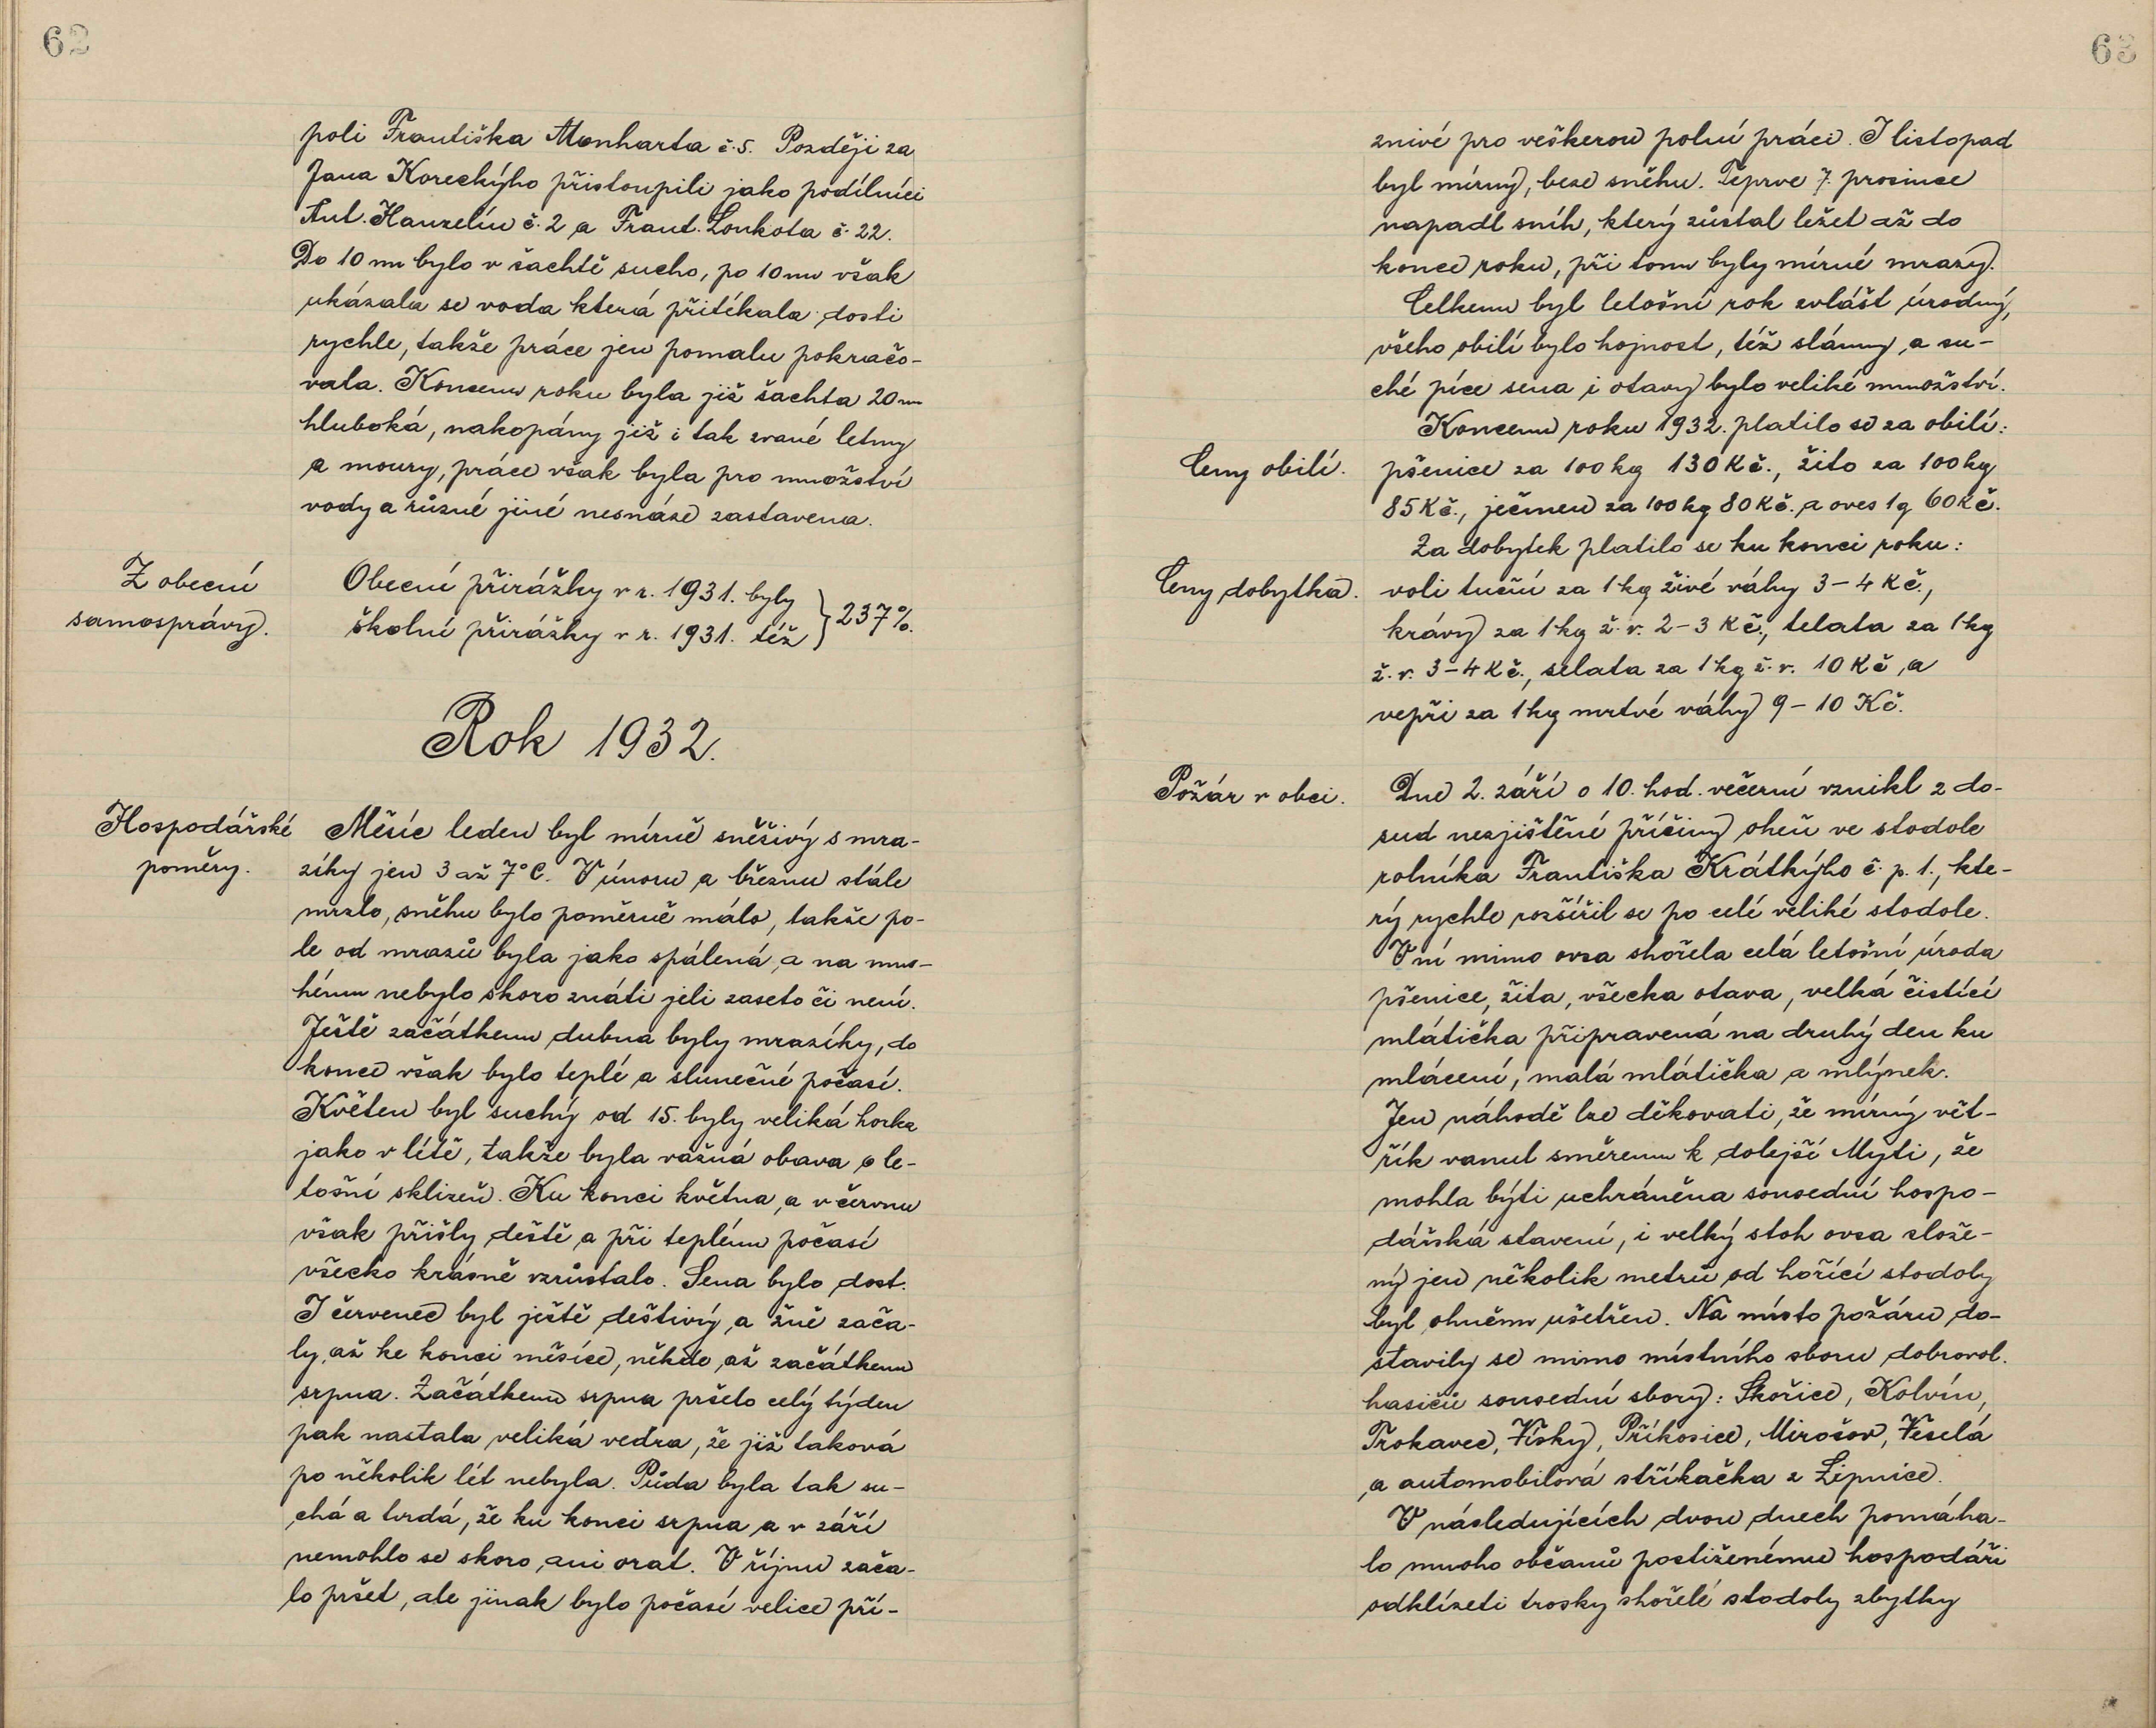 62
poli Františka Monharta č. 5. Později za
Jana Koreckýho přistoupili jako podílníci
Ant. Hanzelín č. 2 a Frant. Loukota č. 22.
Do 10 m bylo v šachtě sucho, po 10 m však
ukázala se voda která přitékala dosti
rychle, takže práce jen pomalu pokračo-
vala. Koncem roku byla již šachta 20 m
hluboká, nakopány již i tak zvané letny
a moury, práce však byla pro množství
vody a různé jiné nesnáze zastavena.
Z obecní
samosprávy.
Obecní přirážky v r. 1931. byly
školní přirážky v r. 1931. též } 237%.
Rok 1932.
Hospodářské
poměry.
Měsíc leden byl mírně sněživý s mra-
zíky jen 3 až 7°C. V únoru a březnu stále
mrzlo, sněhu bylo poměrně málo, takže po-
le od mrazů byla jako spálená, a na mno-
hém nebylo skoro znáti jeli zaseto či není.
Ještě začátkem dubna byly mrazíky, do
konce však bylo teplé a slunečné počasí.
Květen byl suchý od 15. byly veliká horka
jako v létě, takže byla vážná obava o le-
tošní sklizeň. Ku konci května, a v červnu
však přišly deště a při teplém počasí
všecko krásně vzrůstalo. Sena bylo dost.
I červenec byl ještě deštivý, a žně zača-
ly, až ke konci měsíce, někde, až začátkem
srpna. Začátkem srpna pršelo celý týden
pak nastala veliká vedra, že již taková
po několik lét nebyla. Půda byla tak su-
chá a tvrdá, že ku konci srpna a v září
nemohlo se skoro ani orat. V říjnu zača-
lo pršet, ale jinak bylo počasí velice pří-
63
znivé pro veškerou polní práci. I listopad
byl mírný, beze sněhu. Teprve 7. prosince
napadl sníh, který zůstal ležet až do
konce roku, při tom byly mírné mrazy.
Celkem byl letošní rok zvlášt úrodný,
všeho obilí bylo hojnost, též slámy, a su-
ché píce sena i otavy bylo veliké množství.
Koncem roku 1932. platilo se za obilí:
Ceny obilí.
pšenice za 100 kg 130 Kč., žito za 100 kg
85 Kč., ječmen za 100 kg 80 Kč. a oves 1 q 60 Kč.
Za dobytek platilo se ku konci roku:
Ceny dobytka.
voli tuční za 1 kg živé váhy 3-4 Kč.,
krávy za 1 kg ž. v. 2-3 Kč., telata za 1 kg
ž. v. 3-4 Kč., selata za 1 kg ž. v. 10 Kč, a
vepři za 1 kg mrtvé váhy 9-10 Kč.
Požár v obci.
Dne 2. září o 10. hod. večerní vznikl z do-
sud nezjištěné příčiny oheň ve stodole
rolníka Františka Krátkýho č. p. 1., kte-
rý rychle rozšířil se po celé veliké stodole.
V ní mimo ovsa shořela celá letošní úroda
pšenice, žita, všecka otava, velká čistící
mlátička připravená na druhý den ku
mlácení, malá mlátička a mlýnek.
Jen náhodě lze děkovati, že mírný vět-
řík vanul směrem k dolejší Mýti, že
mohla býti uchráněna sousední hospo-
dářská stavení, i velký stoh ovsa slože-
ný jen několik metrů od hořící stodoly
byl ohněm ušetřen. Na místo požáru do-
stavily se mimo místního sboru dobrovol.
hasičů sousední sbory: Skořice, Kolvín,
Trokavec, Vísky, Příkosice, Mirošov, Veselá
a automobilová stříkačka z Lipnice.
V následujících dvou dnech pomáha-
lo mnoho občanů postiženému hospodáři
odklízeti trosky shořelé stodoly zbytky